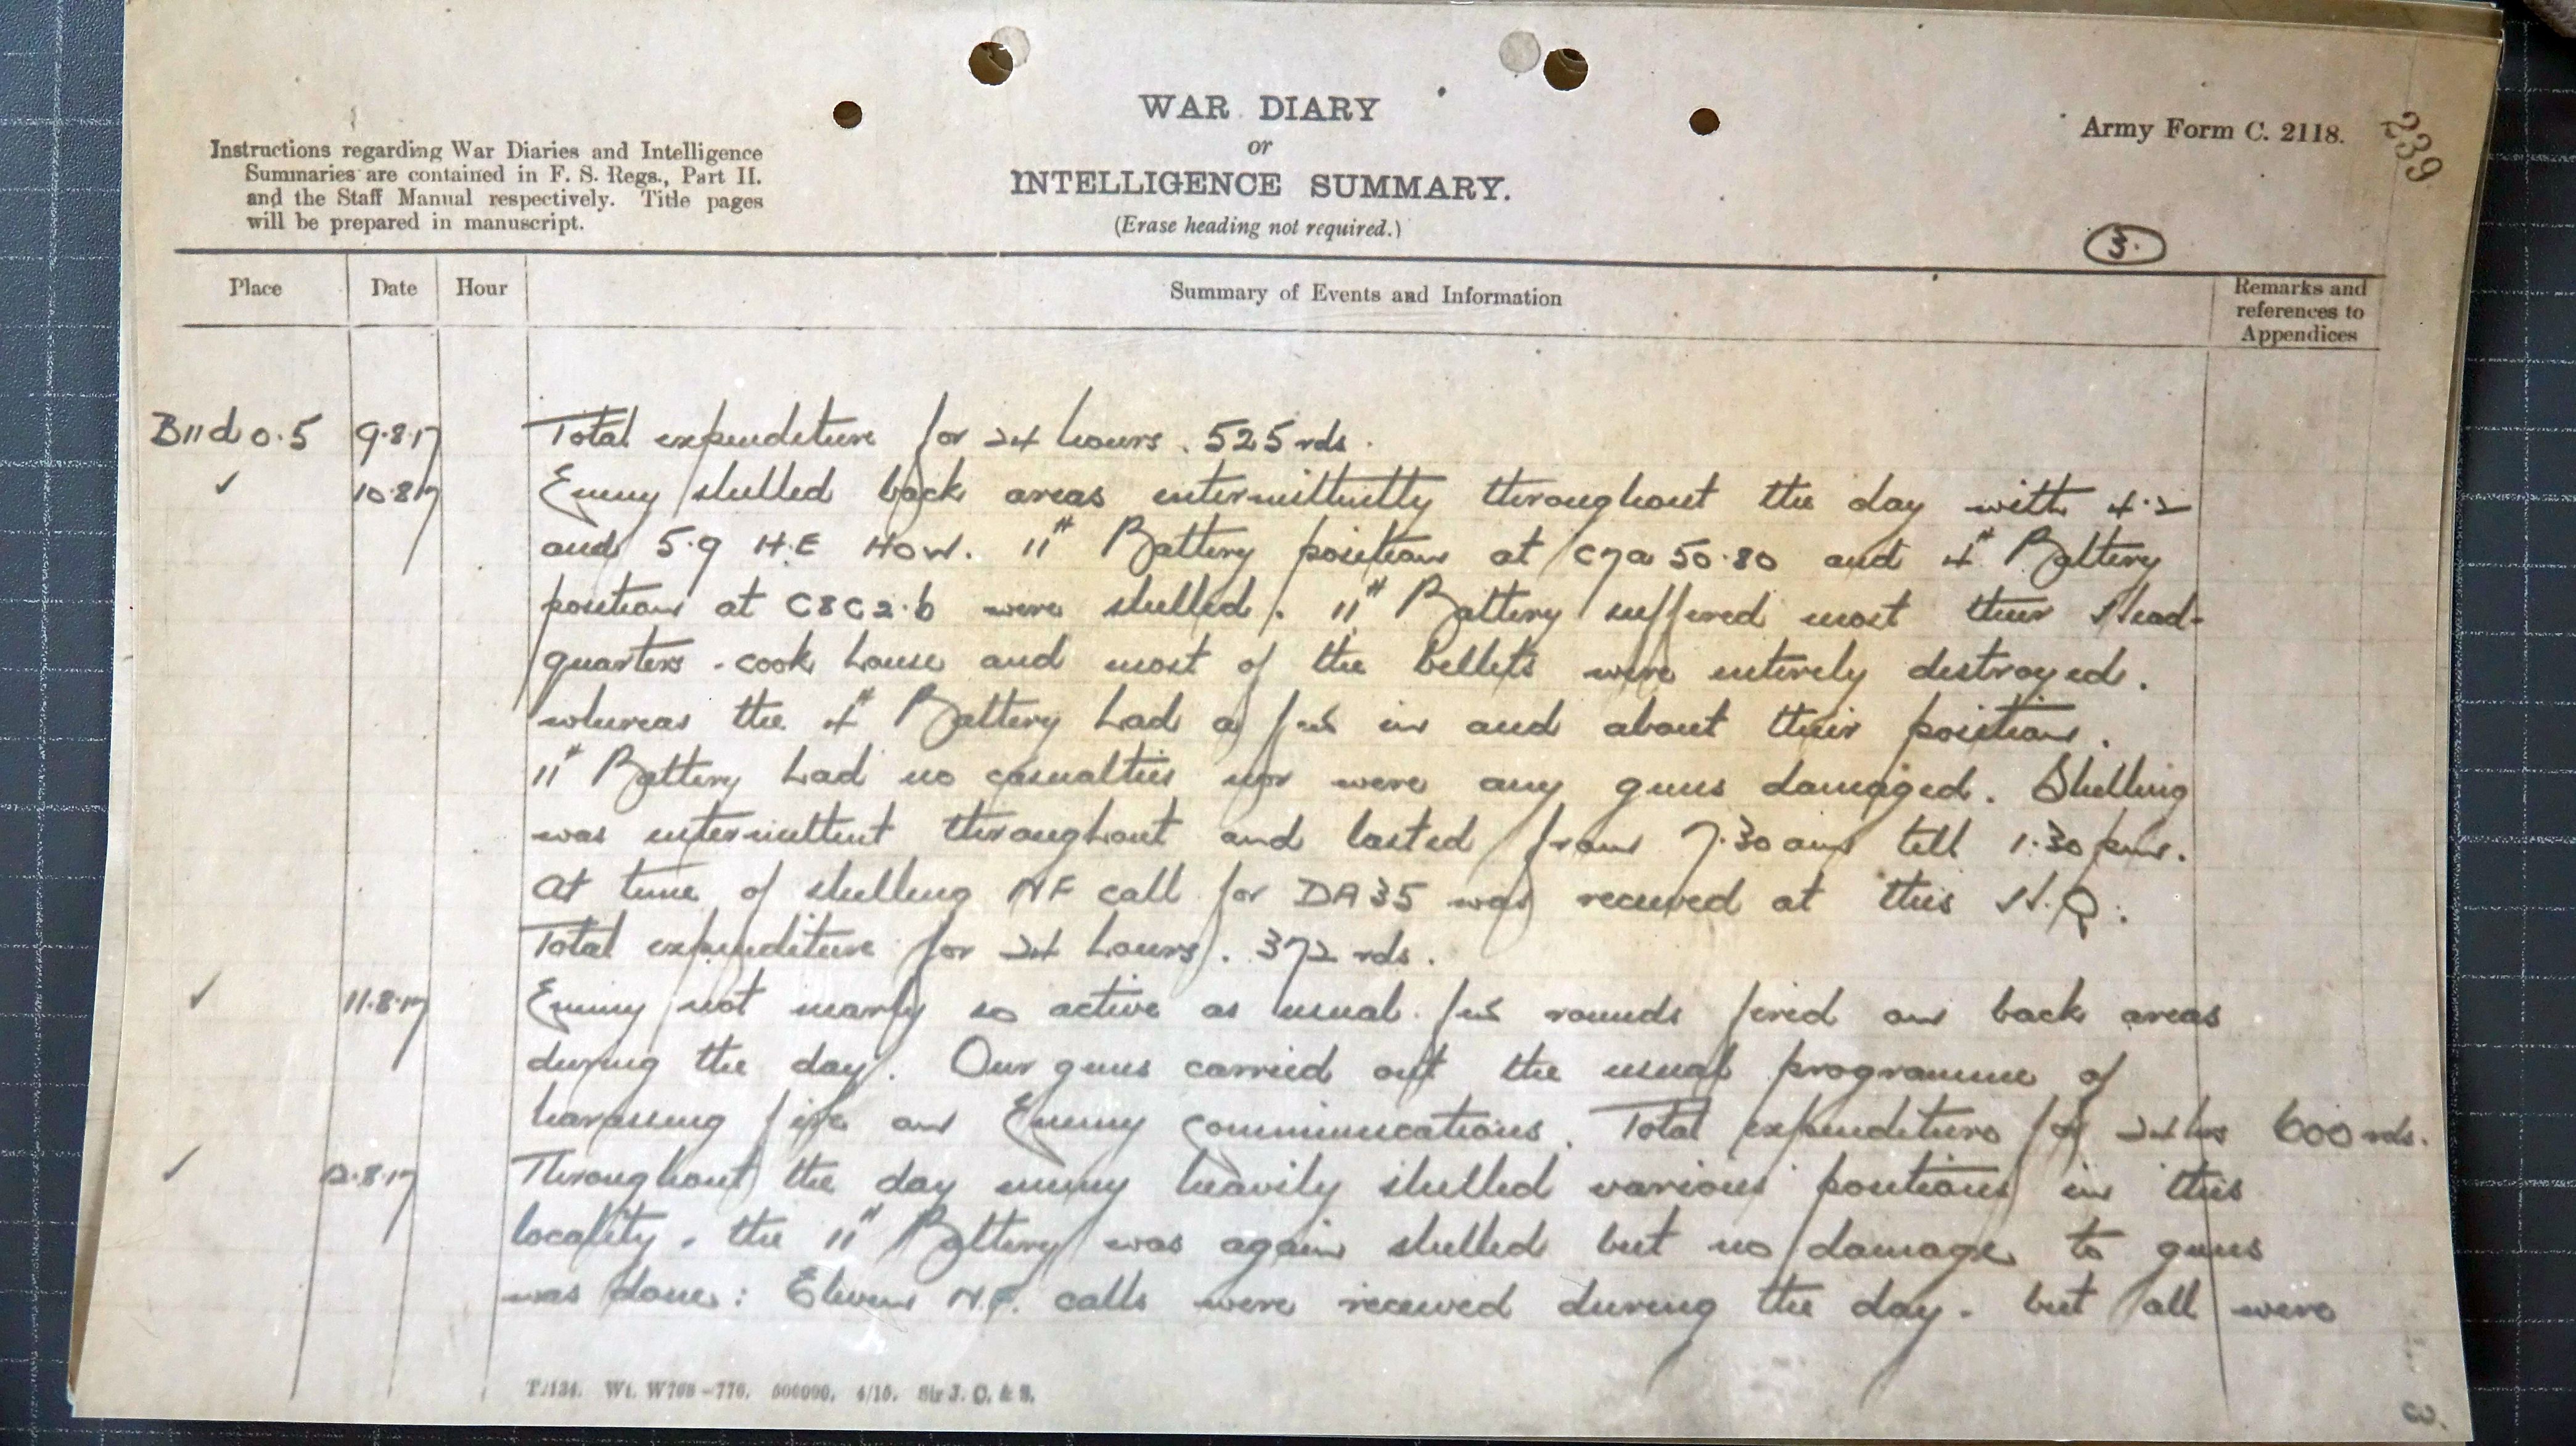 WAR DIARY
or
INTELLIGENCE SUMMARY.
(Erase heading not required.)
Instructions regarding War Diaries and Intelligence
Summaries are contained in F. S. Regs., Part II.
and the Staff Manual respectively. Title pages
will be prepared in manuscript.
Army Form C. 2118.
239
3.
Place Date Hour Summary of Events and Information Remarks and references to Appendices
B11d 0.5 9.8.17 Total expenditure for 24 hours. 525 rds.
✓ 10.8.17 Enemy shelled back areas intermittently throughout the day with 4.2
and 5.9 H.E How. 11th Battery position at C7a 50.80 and 4th Battery
position at C8C2.6 were shelled. 11th Battery suffered most their Head-
quarters. cook house and most of the billets were entirely destroyed.
whereas the 4th Battery had a few in and about their position.
11th Battery had no casualties nor were any guns damaged. Shelling
was intermittent throughout and lasted from 7.30 am till 1.30 pm.
At time of shelling NF call for DA35 was received at this H.Q.
Total expenditure for 24 hours. 372 rds.
✓ 11.8.17 Enemy not nearly so active as usual. few rounds fired on back areas
during the day. Our guns carried out the usual programme of
harassing fire on Enemy communications. Total expenditure for 24 hrs 600 rds.
✓ 12.8.17 Throughout the day enemy heavily shelled various positions in this
locality. the 11th Battery was again shelled but no damage to guns
was done: Eleven N.F. calls were received during the day. but all were
T2134. Wt. W708-776. 500000. 4/15. Sir J. C. & S.